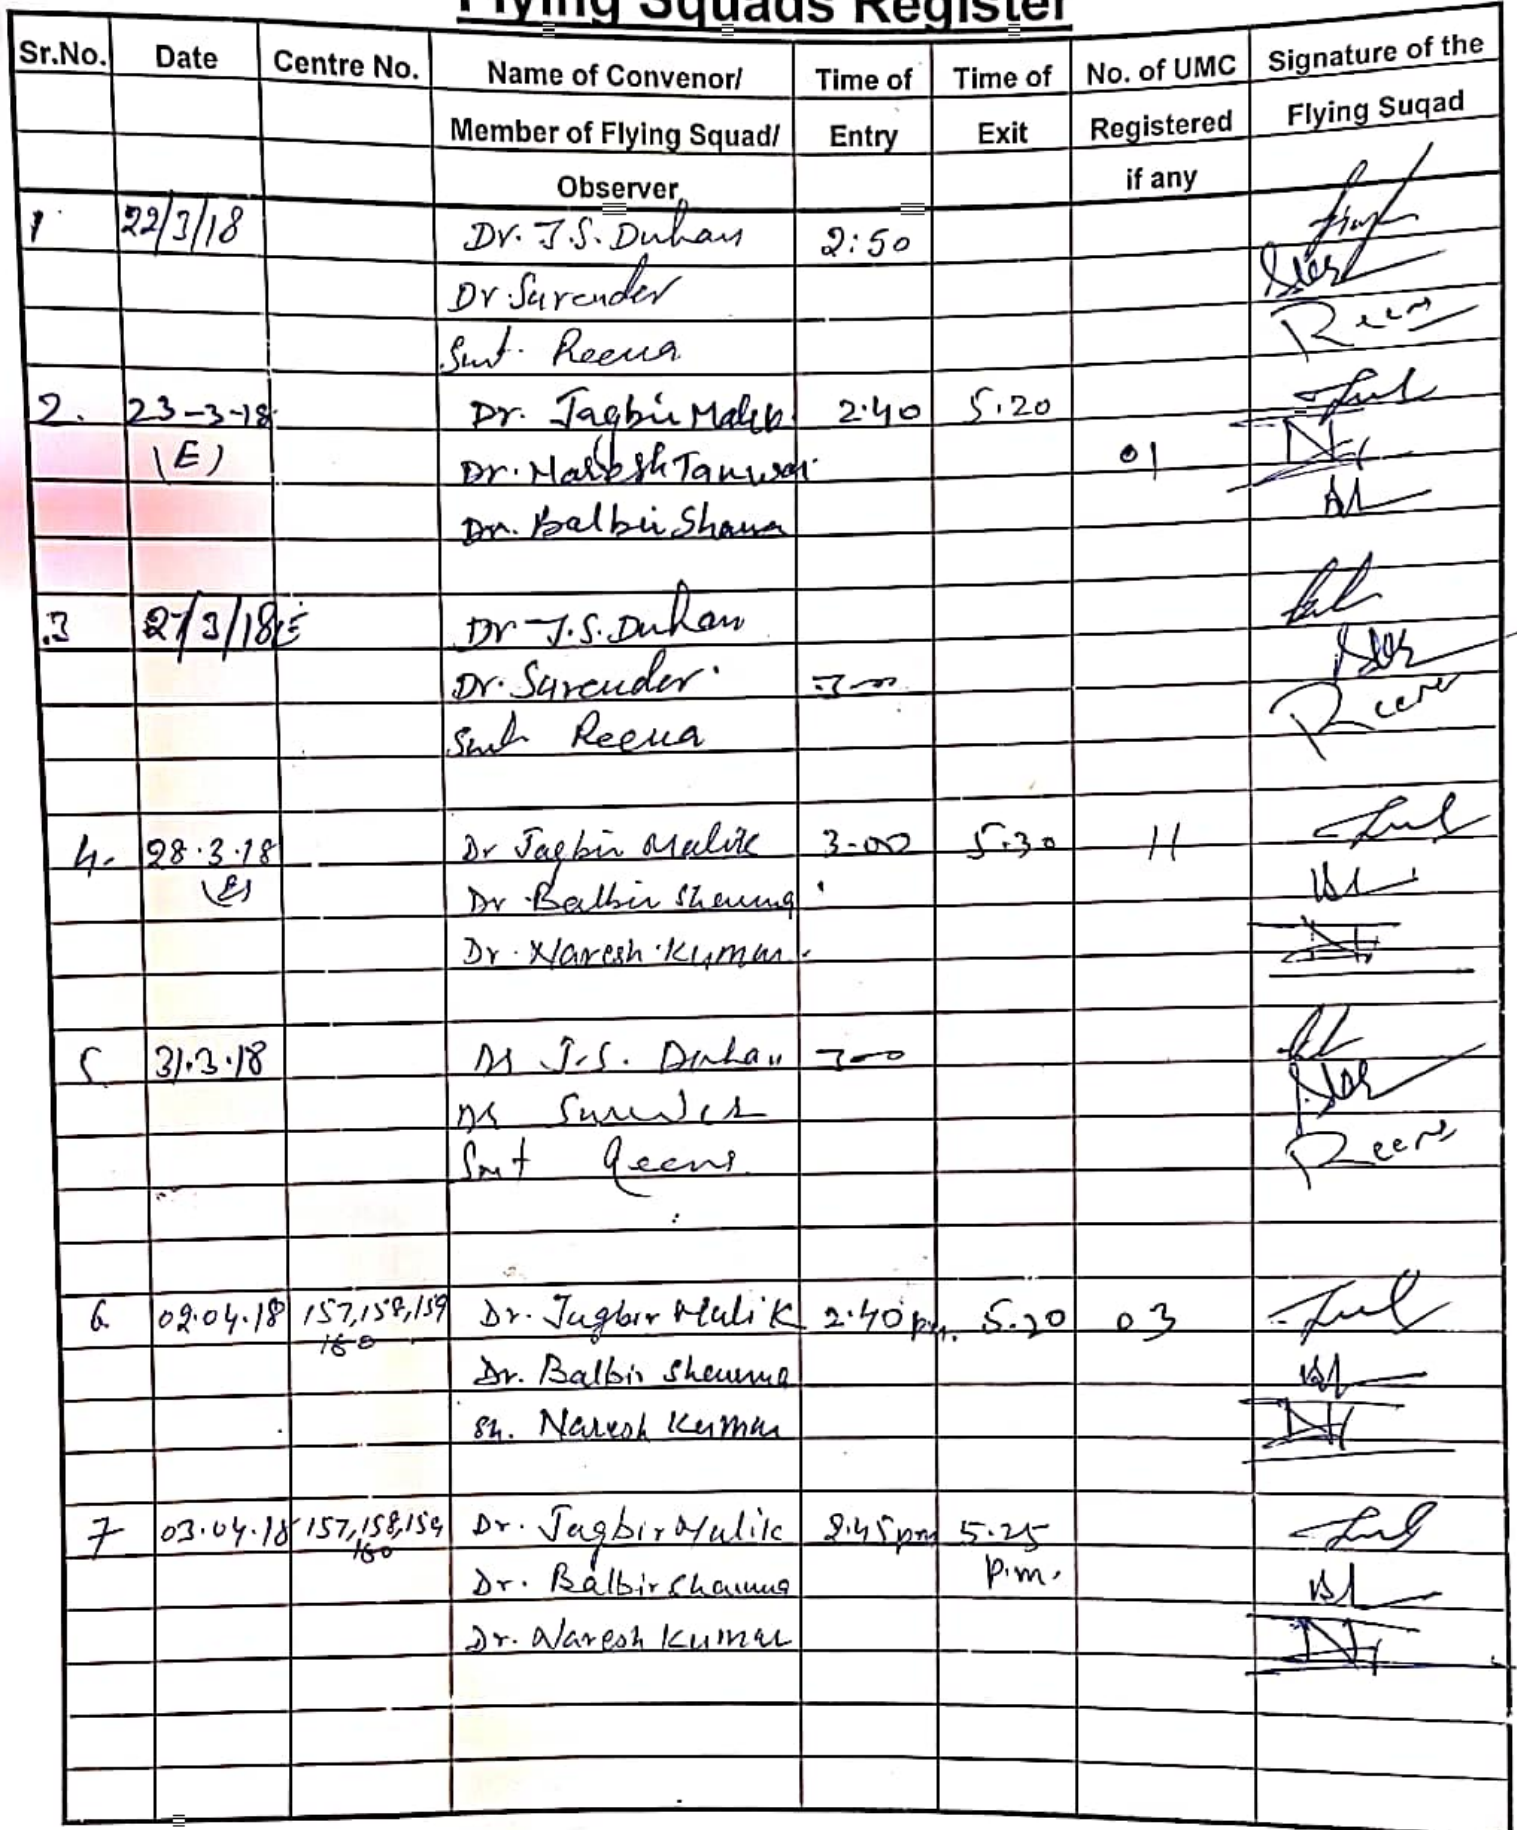 Flying Squads Register
Sr.No. Date Centre No. Name of Convenor/ Time of Time of No. of UMC Signature of the
Member of Flying Squad/ Entry Exit Registered Flying Suqad
Observer if any
1 22/3/18 Dr. J.S. Duhan 2:50
Dr Surender
Smt. Reena Reena
2. 23-3-18 Dr. Jagbir Malik 2.40 5.20
(E) Dr. Tanwar 01
Dr. Balbir Sharma
3 27/3/18 E Dr J.S. Duhan
Dr. Surender 3-00
Smt Reena Reena
4. 28.3.18 Dr Jagbir Malik 3-00 5.30 11
(E) Dr. Balbir Sharma
Dr. Naresh Kumar
5 31.3.18 Dr J.S. Duhan 3-00
Dr Surender
Smt Reena Reena
6. 02.04.18 157,158,159 Dr. Jagbir Malik 2.40 p.m. 5.20 03
160 Dr. Balbir Sharma
Sh. Naresh Kumar
7 03.04.18 157,158,159 Dr. Jagbir Malik 2.45 pm 5.25
160 Dr. Balbir Sharma p.m.
Dr. Naresh Kumar